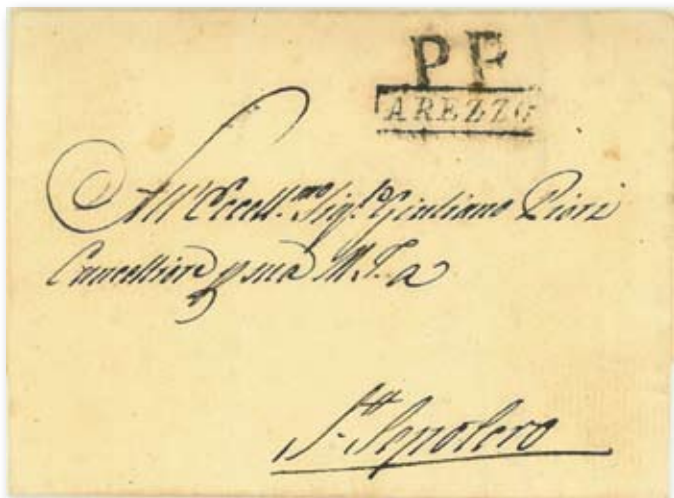 P P
AREZZO
All'Eccell.mo Sig.re Giuliano
Cancelliere p sua M. I. a
S. Sepolcro